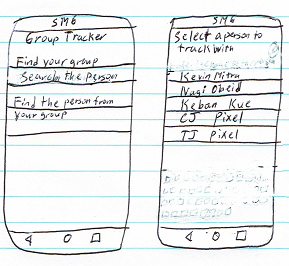 SMG
Group Tracker
Find your group
Search the person
Find the person from
your group
SMG
Select a person to
track with
Kevin Mitra
Nagi Obeid
Keban Kue
CJ Pixel
TJ Pixel